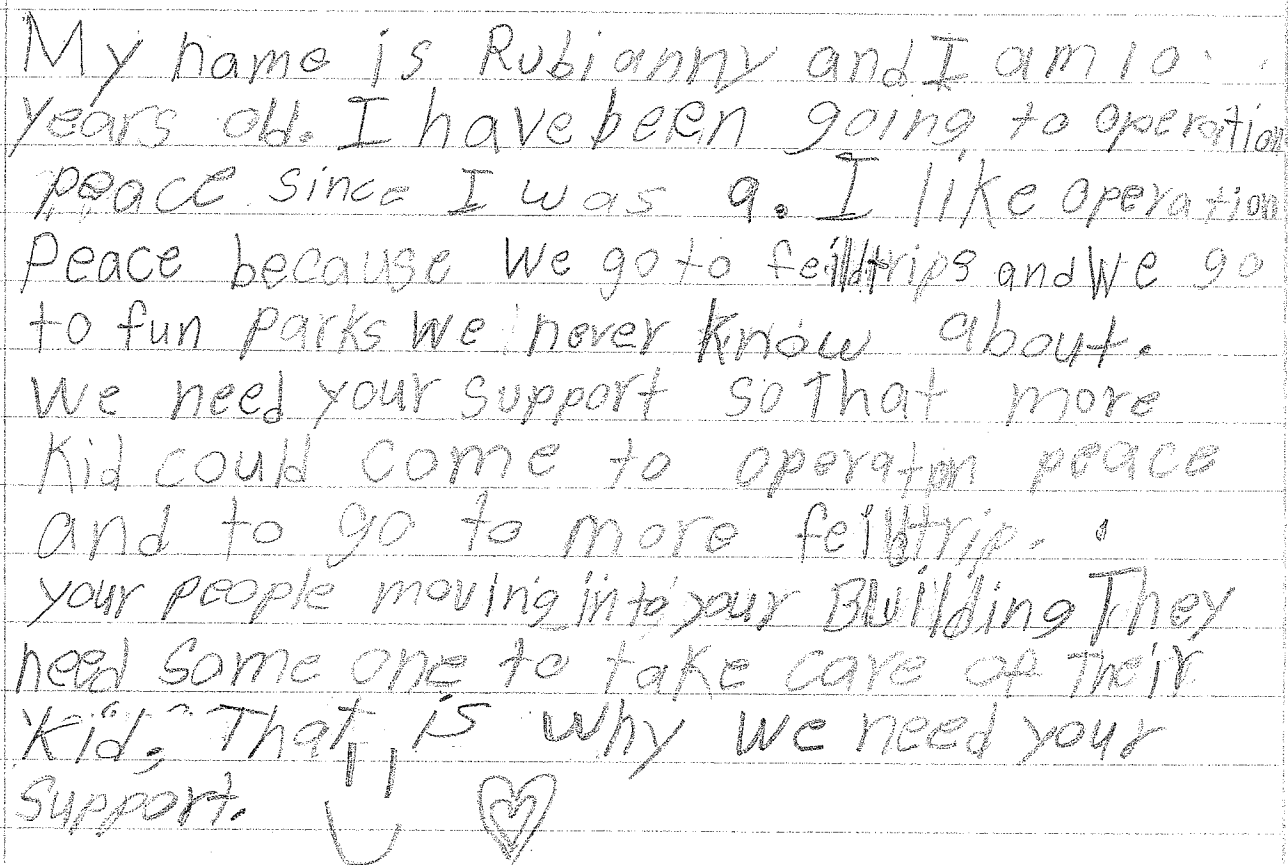 My name is Rubianny and I am 10
years old. I have been going to operation
peace since I was 9. I like operation
Peace because We go to feildtrips and We go
to fun parks We never know about.
We need your support so That more
Kid could come to operation peace
and to go to more feildtrip.
your people moving into your Building They
need some one to take care of Their
Kid. That is why we need your
support.